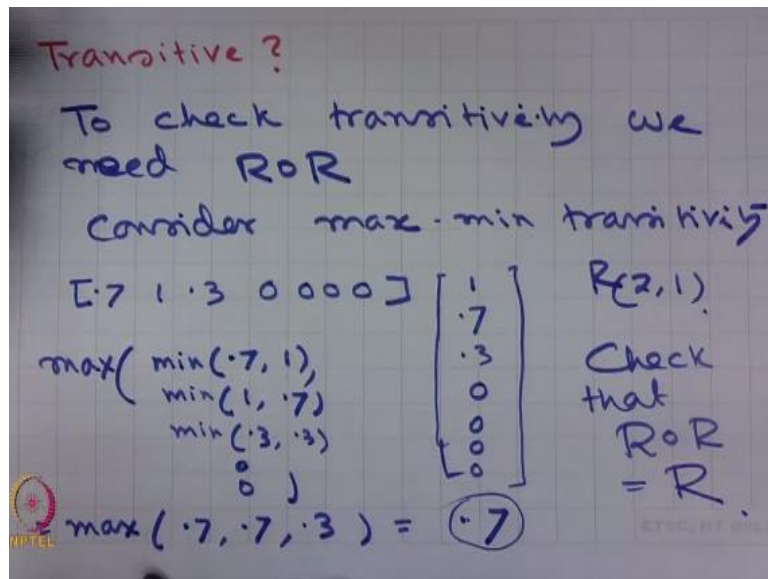 Transitive ?
To check transitivity we
need R∘R
Consider max-min transitivity
[.7 1 .3 0 0 0 0] [1 .7 .3 0 0 0 0] R(2,1)
max( min(.7, 1),
min(1, .7)
min(.3, .3)
0
0 )
Check
that
R∘R
= R.
= max(.7, .7, .3) = .7
NPTEL